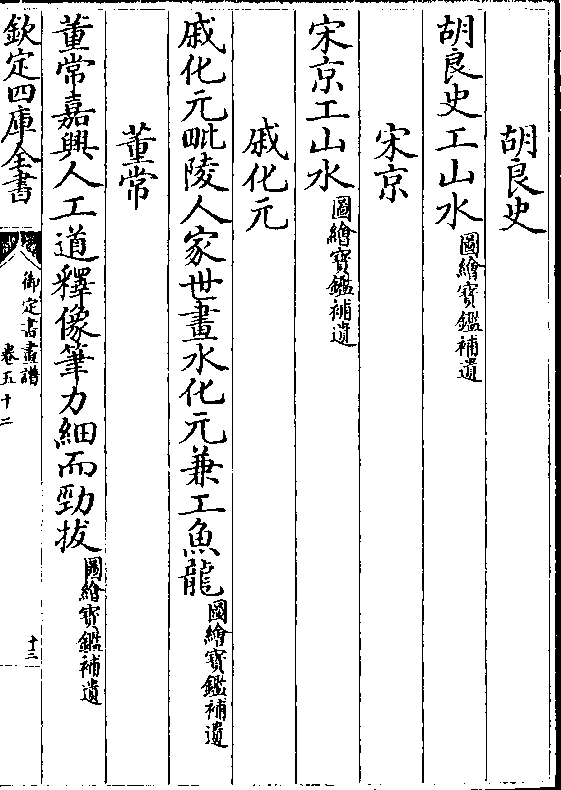 胡良史
胡良史工山水圖繪寶鑑補遺
宋京
宋京工山水圖繪寶鑑補遺
戚化元
戚化元毗陵人家世畫水化元兼工魚龍圖繪寶鑑補遺
董常
董常嘉興人工道釋像筆力細而勁拔圖繪寶鑑補遺
欽定四庫全書
御定書畫譜
卷五十二
十三